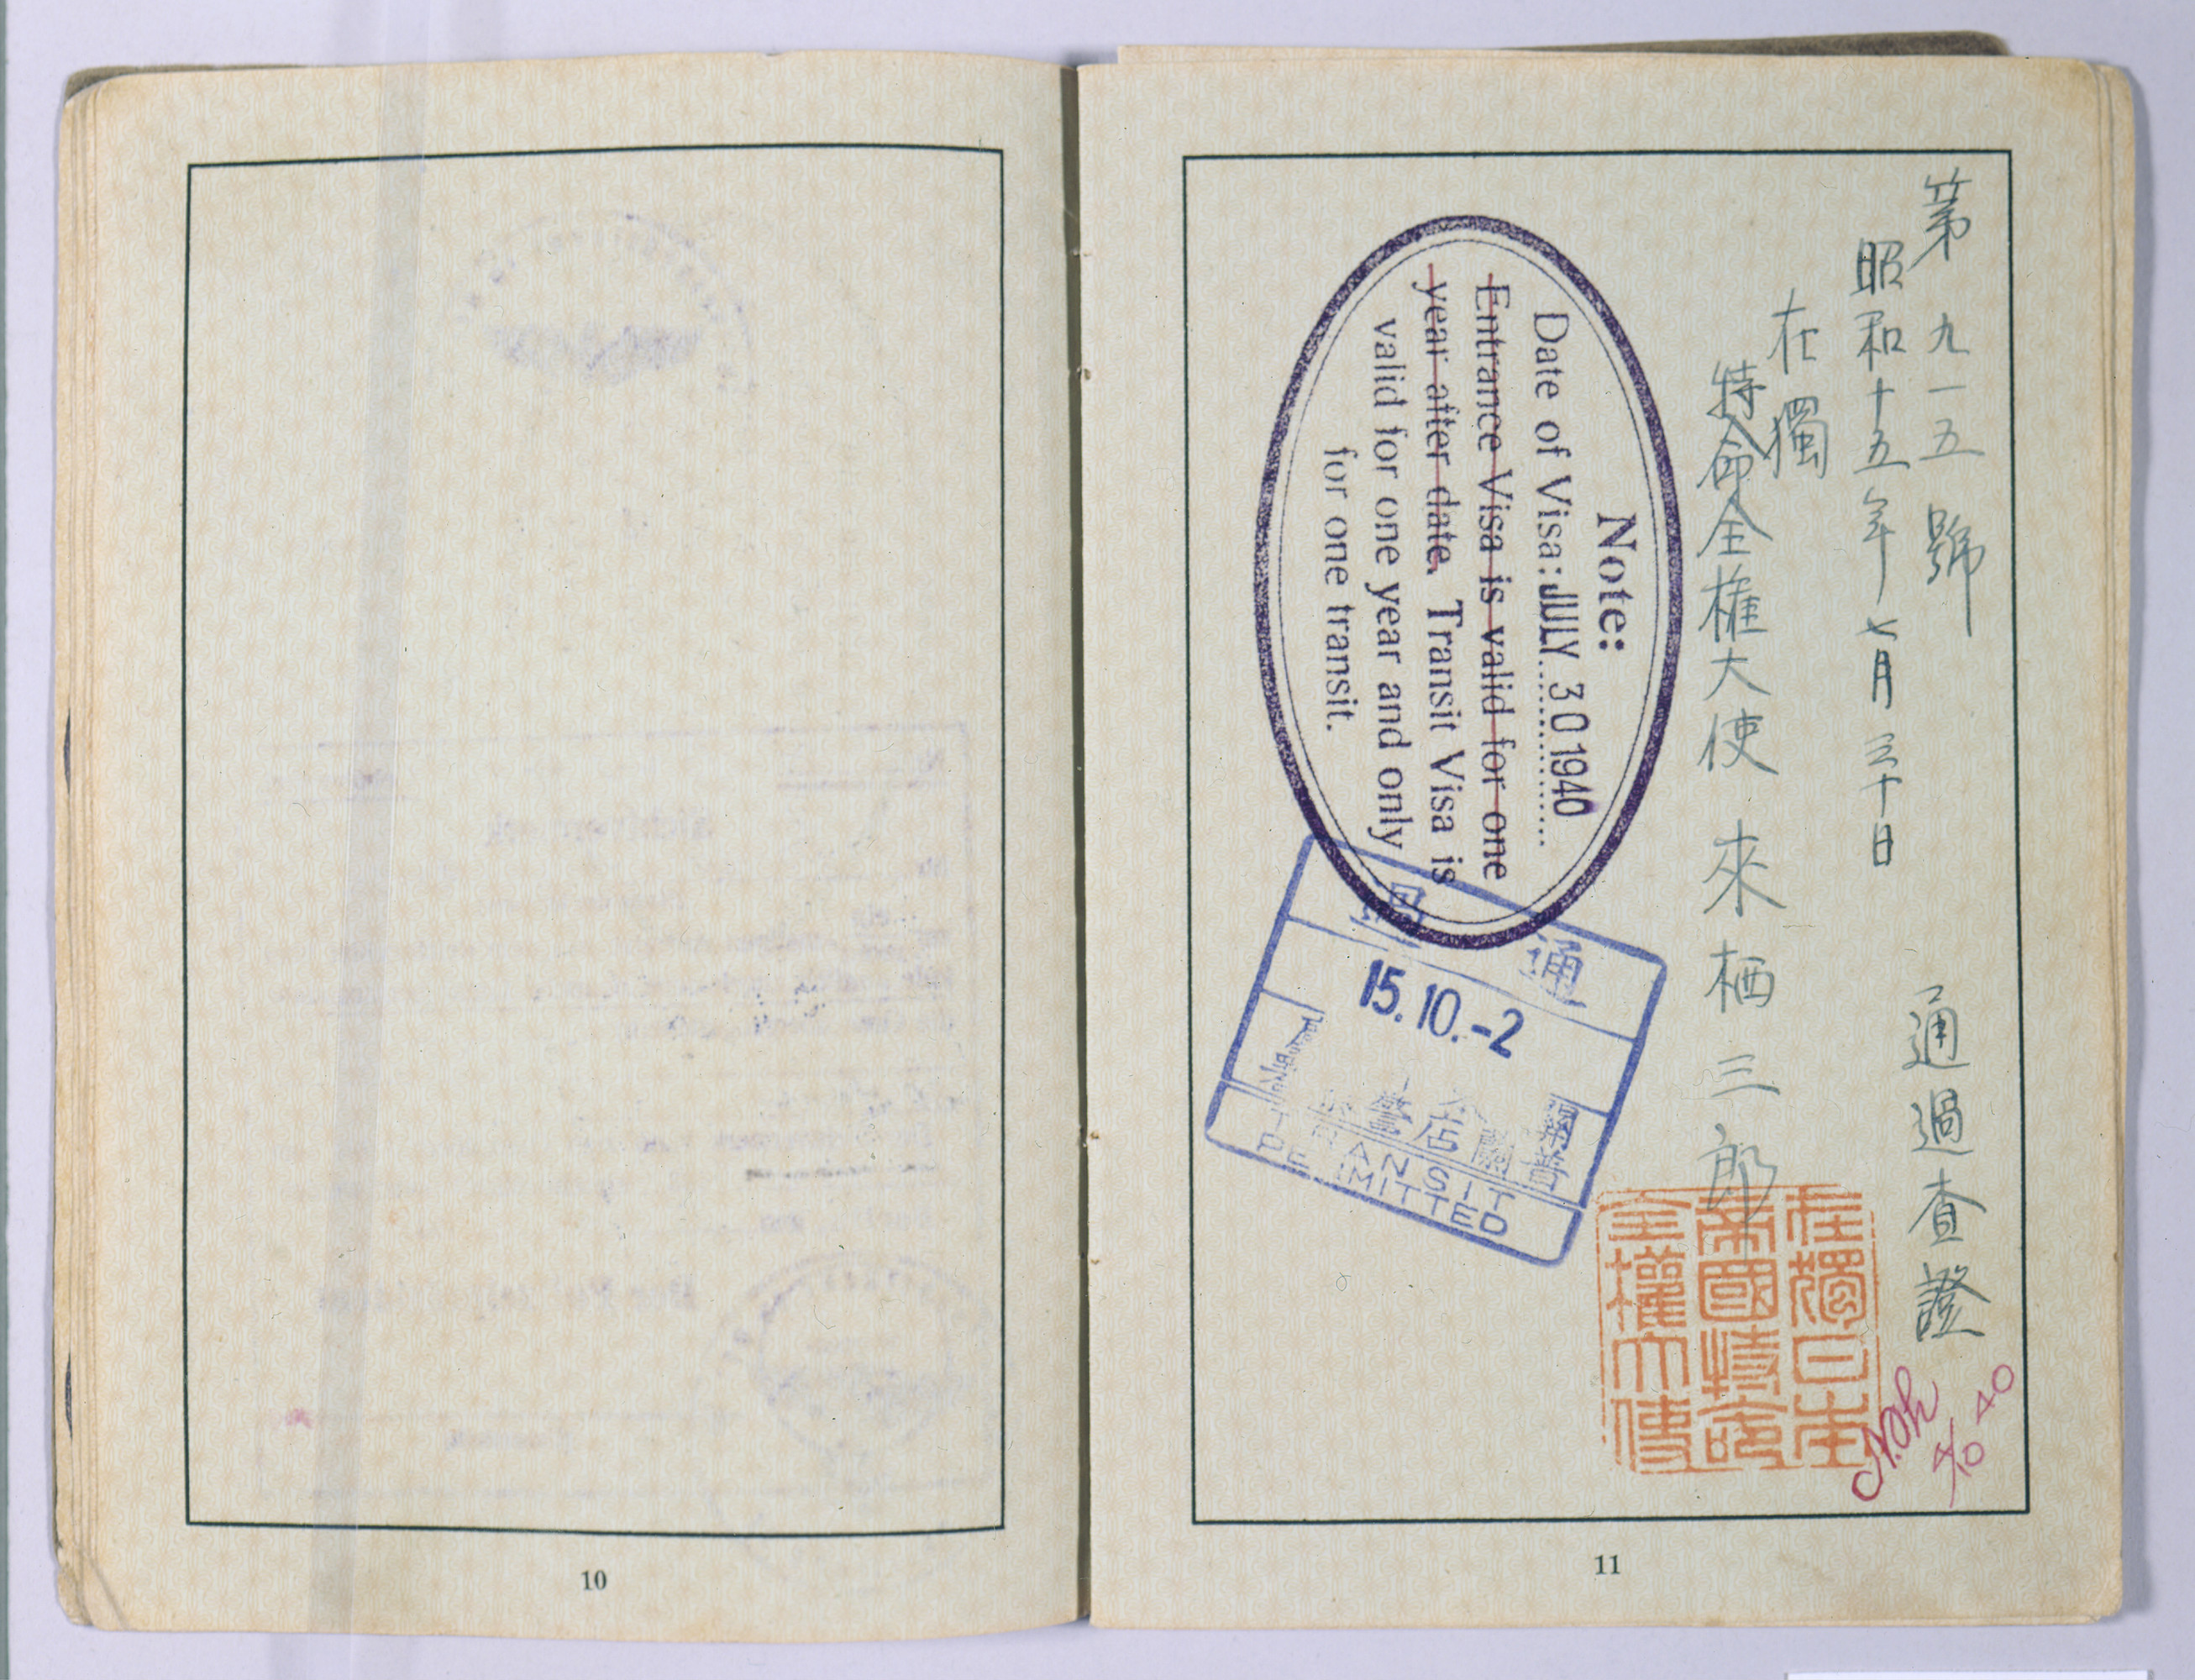 第九一五號 通過査證
昭和十五年七月三十日
在獨
特命全權大使 來栖三郎
Note:
Date of Visa: JULY 30 1940
Entrance Visa is valid for one
year after date. Transit Visa is
valid for one year and only
for one transit.
通過
15.10.-2
TRANSIT
PERMITTED
在獨日本
帝國特命
全權大使
10
11